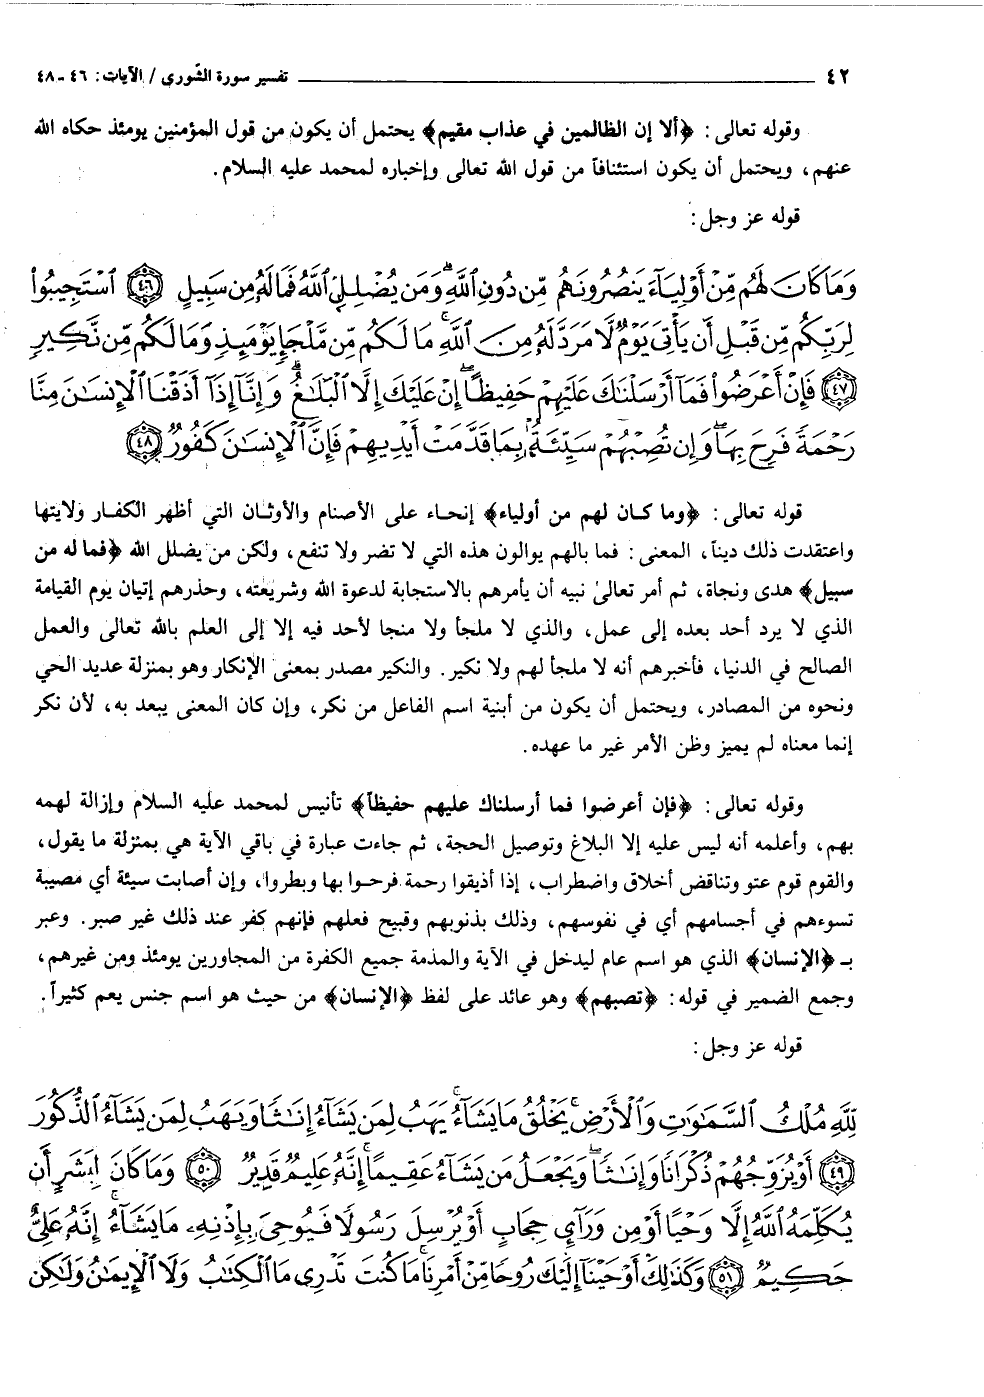 ٤٢ تفسير سورة الشّورى / الآيات: ٤٦ - ٤٨
وقوله تعالى: ﴿ألا إن الظالمين في عذاب مقيم﴾ يحتمل أن يكون من قول المؤمنين يومئذ حكاه الله
عنهم، ويحتمل أن يكون استئنافاً من قول الله تعالى وإخباره لمحمد عليه السلام.
قوله عز وجل:
وَمَا كَانَ لَهُم مِّنْ أَوْلِيَآءَ يَنصُرُونَهُم مِّن دُونِ ٱللَّهِۗ وَمَن يُضْلِلِ ٱللَّهُ فَمَا لَهُۥ مِن سَبِيلٍ ٤٦ ٱسْتَجِيبُوا۟
لِرَبِّكُم مِّن قَبْلِ أَن يَأْتِىَ يَوْمٌ لَّا مَرَدَّ لَهُۥ مِنَ ٱللَّهِۚ مَا لَكُم مِّن مَّلْجَإٍ يَوْمَئِذٍ وَمَا لَكُم مِّن نَّكِيرٍ
٤٧ فَإِنْ أَعْرَضُوا۟ فَمَآ أَرْسَلْنَٰكَ عَلَيْهِمْ حَفِيظًاۖ إِنْ عَلَيْكَ إِلَّا ٱلْبَلَٰغُۗ وَإِنَّآ إِذَآ أَذَقْنَا ٱلْإِنسَٰنَ مِنَّا
رَحْمَةً فَرِحَ بِهَاۖ وَإِن تُصِبْهُمْ سَيِّئَةٌۢ بِمَا قَدَّمَتْ أَيْدِيهِمْ فَإِنَّ ٱلْإِنسَٰنَ كَفُورٌ ٤٨
قوله تعالى: ﴿وما كان لهم من أولياء﴾ إنحاء على الأصنام والأوثان التي أظهر الكفار ولايتها
واعتقدت ذلك ديناً، المعنى: فما بالهم يوالون هذه التي لا تضر ولا تنفع، ولكن من يضلل الله ﴿فما له من
سبيل﴾ هدى ونجاة، ثم أمر تعالىٰ نبيه أن يأمرهم بالاستجابة لدعوة الله وشريعته، وحذرهم إتيان يوم القيامة
الذي لا يرد أحد بعده إلى عمل، والذي لا ملجأ ولا منجا لأحد فيه إلا إلى العلم بالله تعالى والعمل
الصالح في الدنيا، فأخبرهم أنه لا ملجأ لهم ولا نكير. والنكير مصدر بمعنى الإنكار وهو بمنزلة عديد الحي
ونحوه من المصادر، ويحتمل أن يكون من أبنية اسم الفاعل من نكر، وإن كان المعنى يبعد به، لأن نكر
إنما معناه لم يميز وظن الأمر غير ما عهده.
وقوله تعالى: ﴿فإن أعرضوا فما أرسلناك عليهم حفيظاً﴾ تأنيس لمحمد عليه السلام وإزالة لهمه
بهم، وأعلمه أنه ليس عليه إلا البلاغ وتوصيل الحجة، ثم جاءت عبارة في باقي الآية هي بمنزلة ما يقول،
والقوم قوم عتو وتناقض أخلاق واضطراب، إذا أذيقوا رحمة فرحوا بها وبطروا، وإن أصابت سيئة أي مصيبة
تسوءهم في أجسامهم أي في نفوسهم، وذلك بذنوبهم وقبيح فعلهم فإنهم كفر عند ذلك غير صبر. وعبر
بـ ﴿الإنسان﴾ الذي هو اسم عام ليدخل في الآية والمذمة جميع الكفرة من المجاورين يومئذ ومن غيرهم،
وجمع الضمير في قوله: ﴿تصبهم﴾ وهو عائد على لفظ ﴿الإنسان﴾ من حيث هو اسم جنس يعم كثيراً.
قوله عز وجل:
لِّلَّهِ مُلْكُ ٱلسَّمَٰوَٰتِ وَٱلْأَرْضِۚ يَخْلُقُ مَا يَشَآءُۚ يَهَبُ لِمَن يَشَآءُ إِنَٰثًا وَيَهَبُ لِمَن يَشَآءُ ٱلذُّكُورَ
٤٩ أَوْ يُزَوِّجُهُمْ ذُكْرَانًا وَإِنَٰثًاۖ وَيَجْعَلُ مَن يَشَآءُ عَقِيمًاۚ إِنَّهُۥ عَلِيمٌ قَدِيرٌ ٥٠ وَمَا كَانَ لِبَشَرٍ أَن
يُكَلِّمَهُ ٱللَّهُ إِلَّا وَحْيًا أَوْ مِن وَرَآئِ حِجَابٍ أَوْ يُرْسِلَ رَسُولًا فَيُوحِىَ بِإِذْنِهِۦ مَا يَشَآءُۚ إِنَّهُۥ عَلِىٌّ
حَكِيمٌ ٥١ وَكَذَٰلِكَ أَوْحَيْنَآ إِلَيْكَ رُوحًا مِّنْ أَمْرِنَاۚ مَا كُنتَ تَدْرِى مَا ٱلْكِتَٰبُ وَلَا ٱلْإِيمَٰنُ وَلَٰكِن